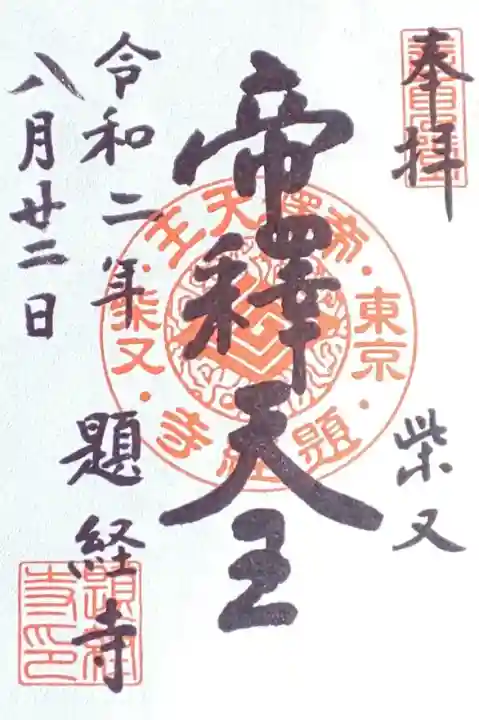 奉拝
柴又
帝釋天王
令和二年
八月廿二日
題経寺
帝釋天王・東京・題経寺・柴又・
題経寺印